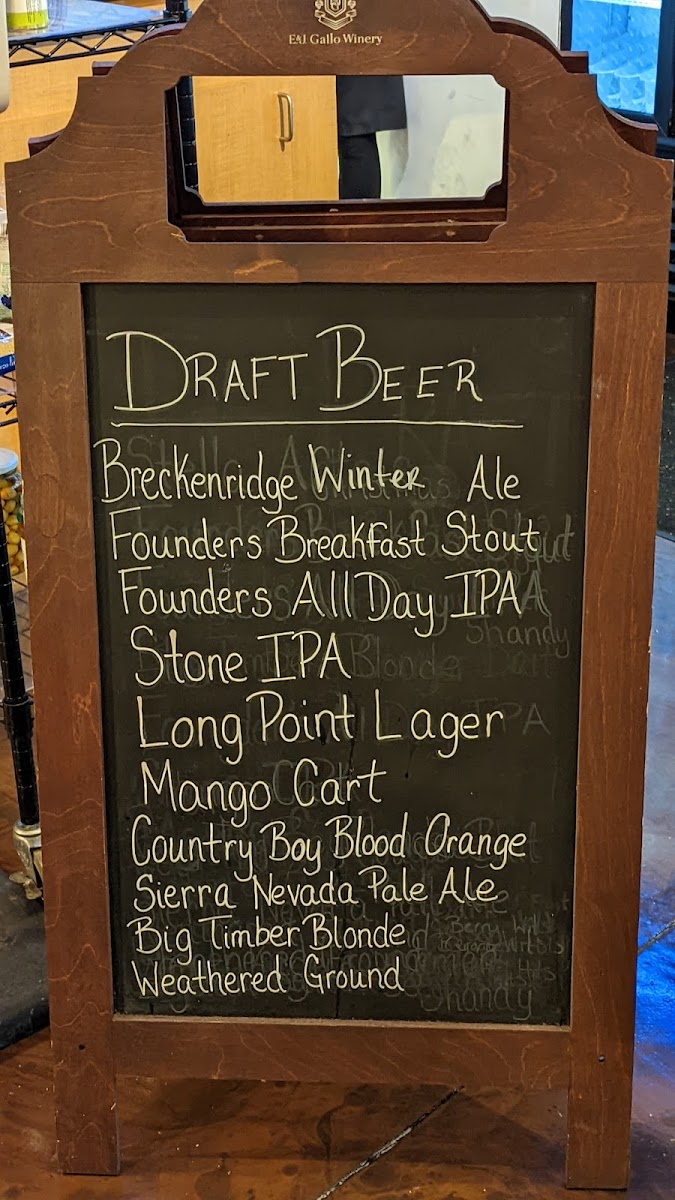 E&J Gallo Winery
DRAFT BEER
Breckenridge Winter Ale
Founders Breakfast Stout
Founders All Day IPA
Stone IPA
Long Point Lager
Mango Cart
Country Boy Blood Orange
Sierra Nevada Pale Ale
Big Timber Blonde
Weathered Ground